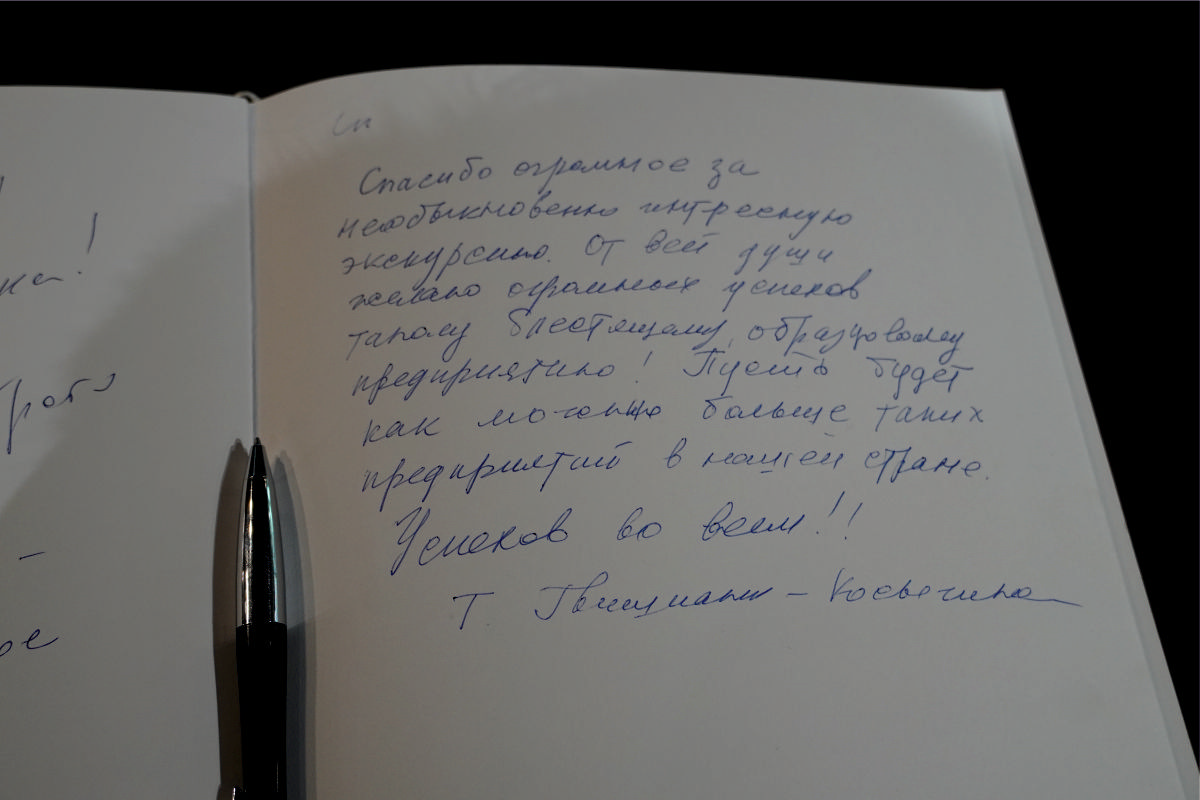 Сп
Спасибо огромное за
необыкновенно интресную
экскурсию. От всей души
желаю огромных успехов
такому блестящему, образцовому
предприятию! Пусть будет
как можно больше таких
предприятий в нашей стране.
Успехов во всем!!
Т. Гвишиани - Косыгина